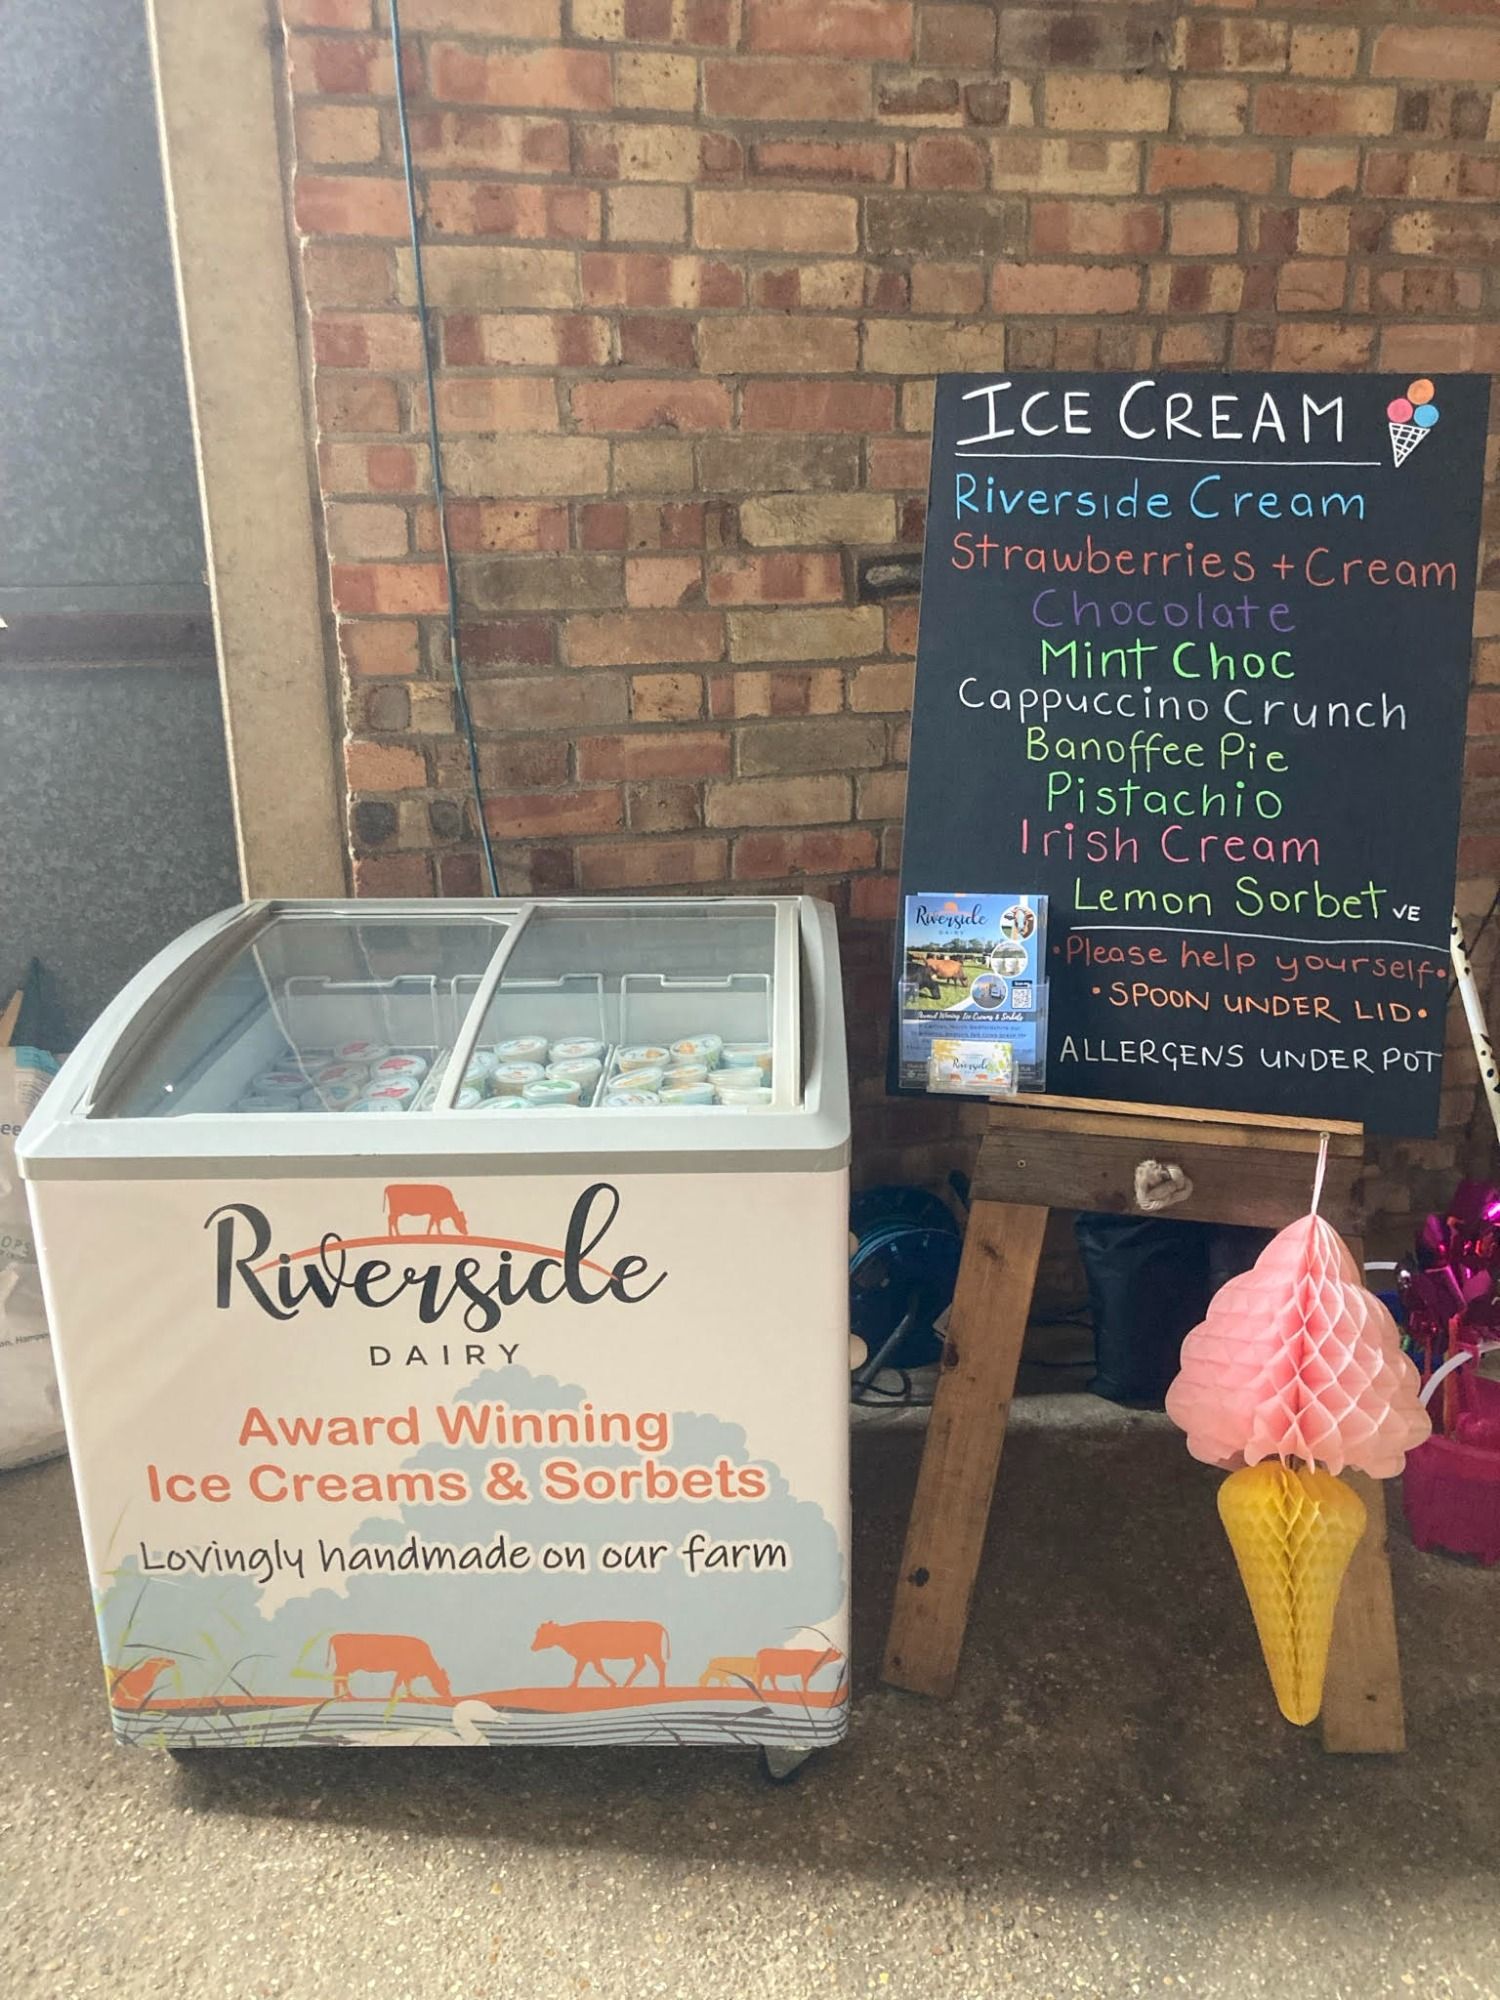 ICE CREAM
Riverside Cream
Strawberries + Cream
Chocolate
Mint Choc
Cappuccino Crunch
Banoffee Pie
Pistachio
Irish Cream
Lemon Sorbet VE
• Please help yourself •
• SPOON UNDER LID •
ALLERGENS UNDER POT
Riverside
DAIRY
Award Winning Ice Creams & Sorbets
Riverside
Riverside
DAIRY
Award Winning
Ice Creams & Sorbets
Lovingly handmade on our farm